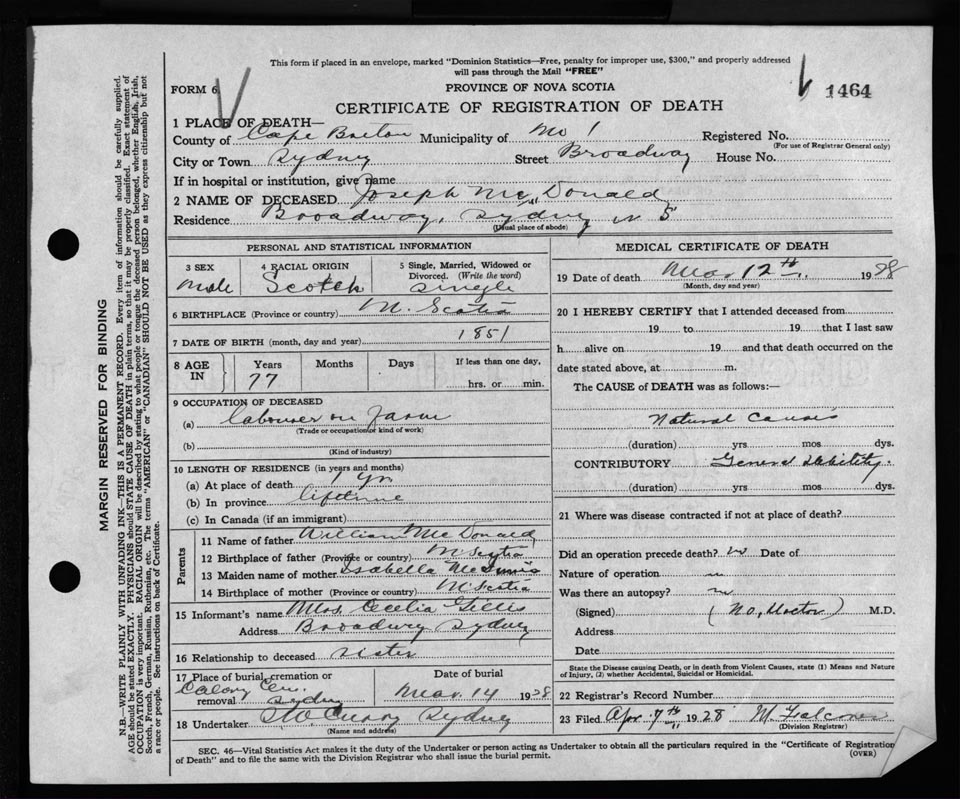 This form if placed in an envelope, marked "Dominion Statistics—Free, penalty for improper use, $300," and properly addressed
will pass through the Mail "FREE"
FORM 6
PROVINCE OF NOVA SCOTIA
1464
CERTIFICATE OF REGISTRATION OF DEATH
1 PLACE OF DEATH—
County of Cape Breton Municipality of No 1 Registered No.
(For use of Registrar General only)
City or Town Sydney Street Broadway House No.
If in hospital or institution, give name
2 NAME OF DECEASED Joseph McDonald
Residence Broadway, Sydney N S
(Usual place of abode)
PERSONAL AND STATISTICAL INFORMATION
3 SEX 4 RACIAL ORIGIN 5 Single, Married, Widowed or
Divorced. (Write the word)
Male Scotch Single
6 BIRTHPLACE (Province or country) N. Scotia
7 DATE OF BIRTH (month, day and year) 1851
8 AGE IN Years Months Days If less than one day,
77 hrs. or min.
9 OCCUPATION OF DECEASED
(a) Labourer on Farm
(Trade or occupation or kind of work)
(b)
(Kind of industry)
10 LENGTH OF RESIDENCE (in years and months)
(a) At place of death 1 yr
(b) In province lifetime
(c) In Canada (if an immigrant)
Parents
11 Name of father William McDonald
12 Birthplace of father (Province or country) N Scotia
13 Maiden name of mother Isabella
14 Birthplace of mother (Province or country) N. Scotia
15 Informant's name Mrs. Cecelia Gillis
Address Broadway Sydney
16 Relationship to deceased Sister
17 Place of burial, cremation or Date of burial
removal Cem. Sydney Mar. 14 1928
18 Undertaker Curry Sydney
(Name and address)
MEDICAL CERTIFICATE OF DEATH
19 Date of death Mar. 12th 1928
(Month, day and year)
20 I HEREBY CERTIFY that I attended deceased from
19 to 19 that I last saw
h alive on 19 and that death occurred on the
date stated above, at m.
The CAUSE of DEATH was as follows:—
Natural Causes
(duration) yrs mos dys.
CONTRIBUTORY General debility.
(duration) yrs mos dys.
21 Where was disease contracted if not at place of death?
Did an operation precede death? no Date of
Nature of operation
Was there an autopsy?
(Signed) (No, Doctor) M.D.
Address
Date
State the Disease causing Death, or in death from Violent Causes, state (1) Means and Nature
of Injury, (2) whether Accidental, Suicidal or Homicidal.
22 Registrar's Record Number
23 Filed Apr 7th 1928 M.
(Division Registrar)
SEC. 46—Vital Statistics Act makes it the duty of the Undertaker or person acting as Undertaker to obtain all the particulars required in the "Certificate of Registration
of Death" and to file the same with the Division Registrar who shall issue the burial permit. (OVER)
MARGIN RESERVED FOR BINDING
N.B.—WRITE PLAINLY WITH UNFADING INK—THIS IS A PERMANENT RECORD. Every item of information should be carefully supplied.
AGE should be stated EXACTLY. PHYSICIANS should STATE CAUSE OF DEATH in plain terms, so that it may be properly classified. Exact statement of
OCCUPATION is very important. RACIAL ORIGIN will be described by stating to what people or tongue the deceased person belonged, whether English, Irish,
Scotch, French, German, Russian, Ruthenian, etc. The terms "AMERICAN" or "CANADIAN" SHOULD NOT BE USED as they express citizenship but not
a race or people. See instructions on back of Certificate.